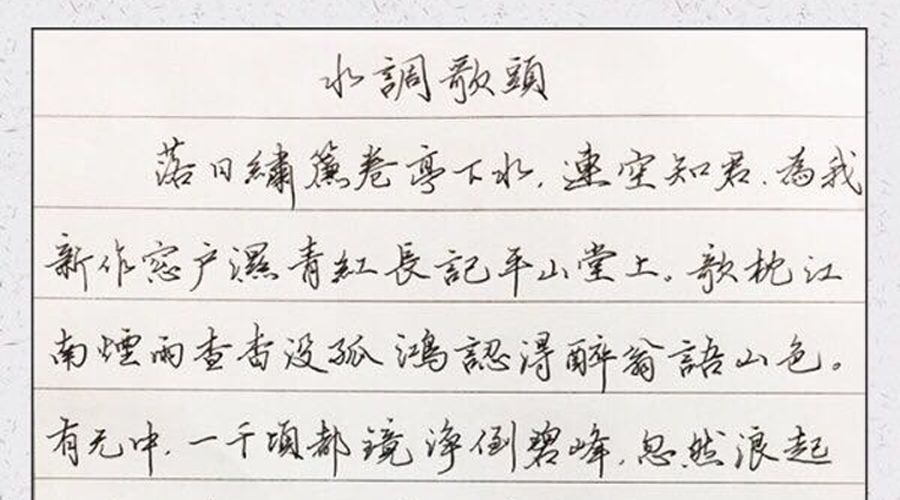 水調歌頭
落日繡簾卷亭下水，連空知君，為我
新作窓户濕青紅長記平山堂上。歌枕江
南煙雨查杳没孤鴻認得醉翁語山色。
有无中，一千頃都鏡净倒碧峰，忽然浪起